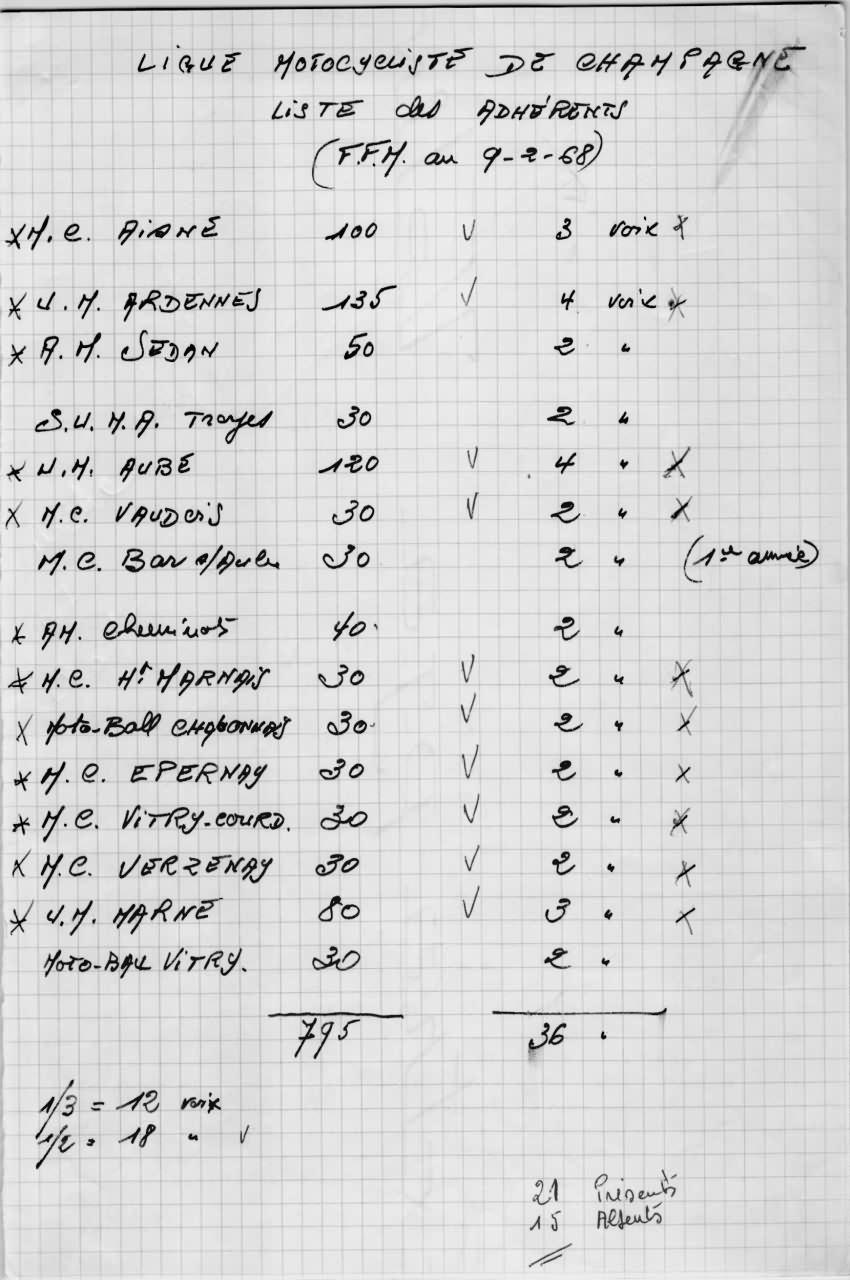 LIGUE MOTOCYCLISTE DE CHAMPAGNE
LISTE des ADHÉRENTS
(F.F.M. au 9-2-68)
x M.C. AISNE 100 v 3 voix x
x U.M. ARDENNES 135 v 4 voix x
x A.M. SEDAN 50 2 "
S.U.M.A. Troyes 30 2 "
x U.M. AUBE 120 v 4 " x
x M.C. VAUDOIS 30 v 2 " x
M.C. Bar s/Aube 30 2 " (1ère année)
x AM. Cheminots 40. 2 "
x M.C. Ht MARNAIS 30 v 2 " x
x Moto-Ball CHALONNAIS 30. v 2 " x
x M.C. EPERNAY 30 v 2 " x
x M.C. VITRY-COURD. 30 v 2 " x
x M.C. VERZENAY 30 v 2 " x
x U.M. MARNE 80 v 3 " x
MOTO-BALL VITRY. 30 2 "
795 36 "
1/3 = 12 voix
1/2 = 18 " v
21 Présents
15 Absents